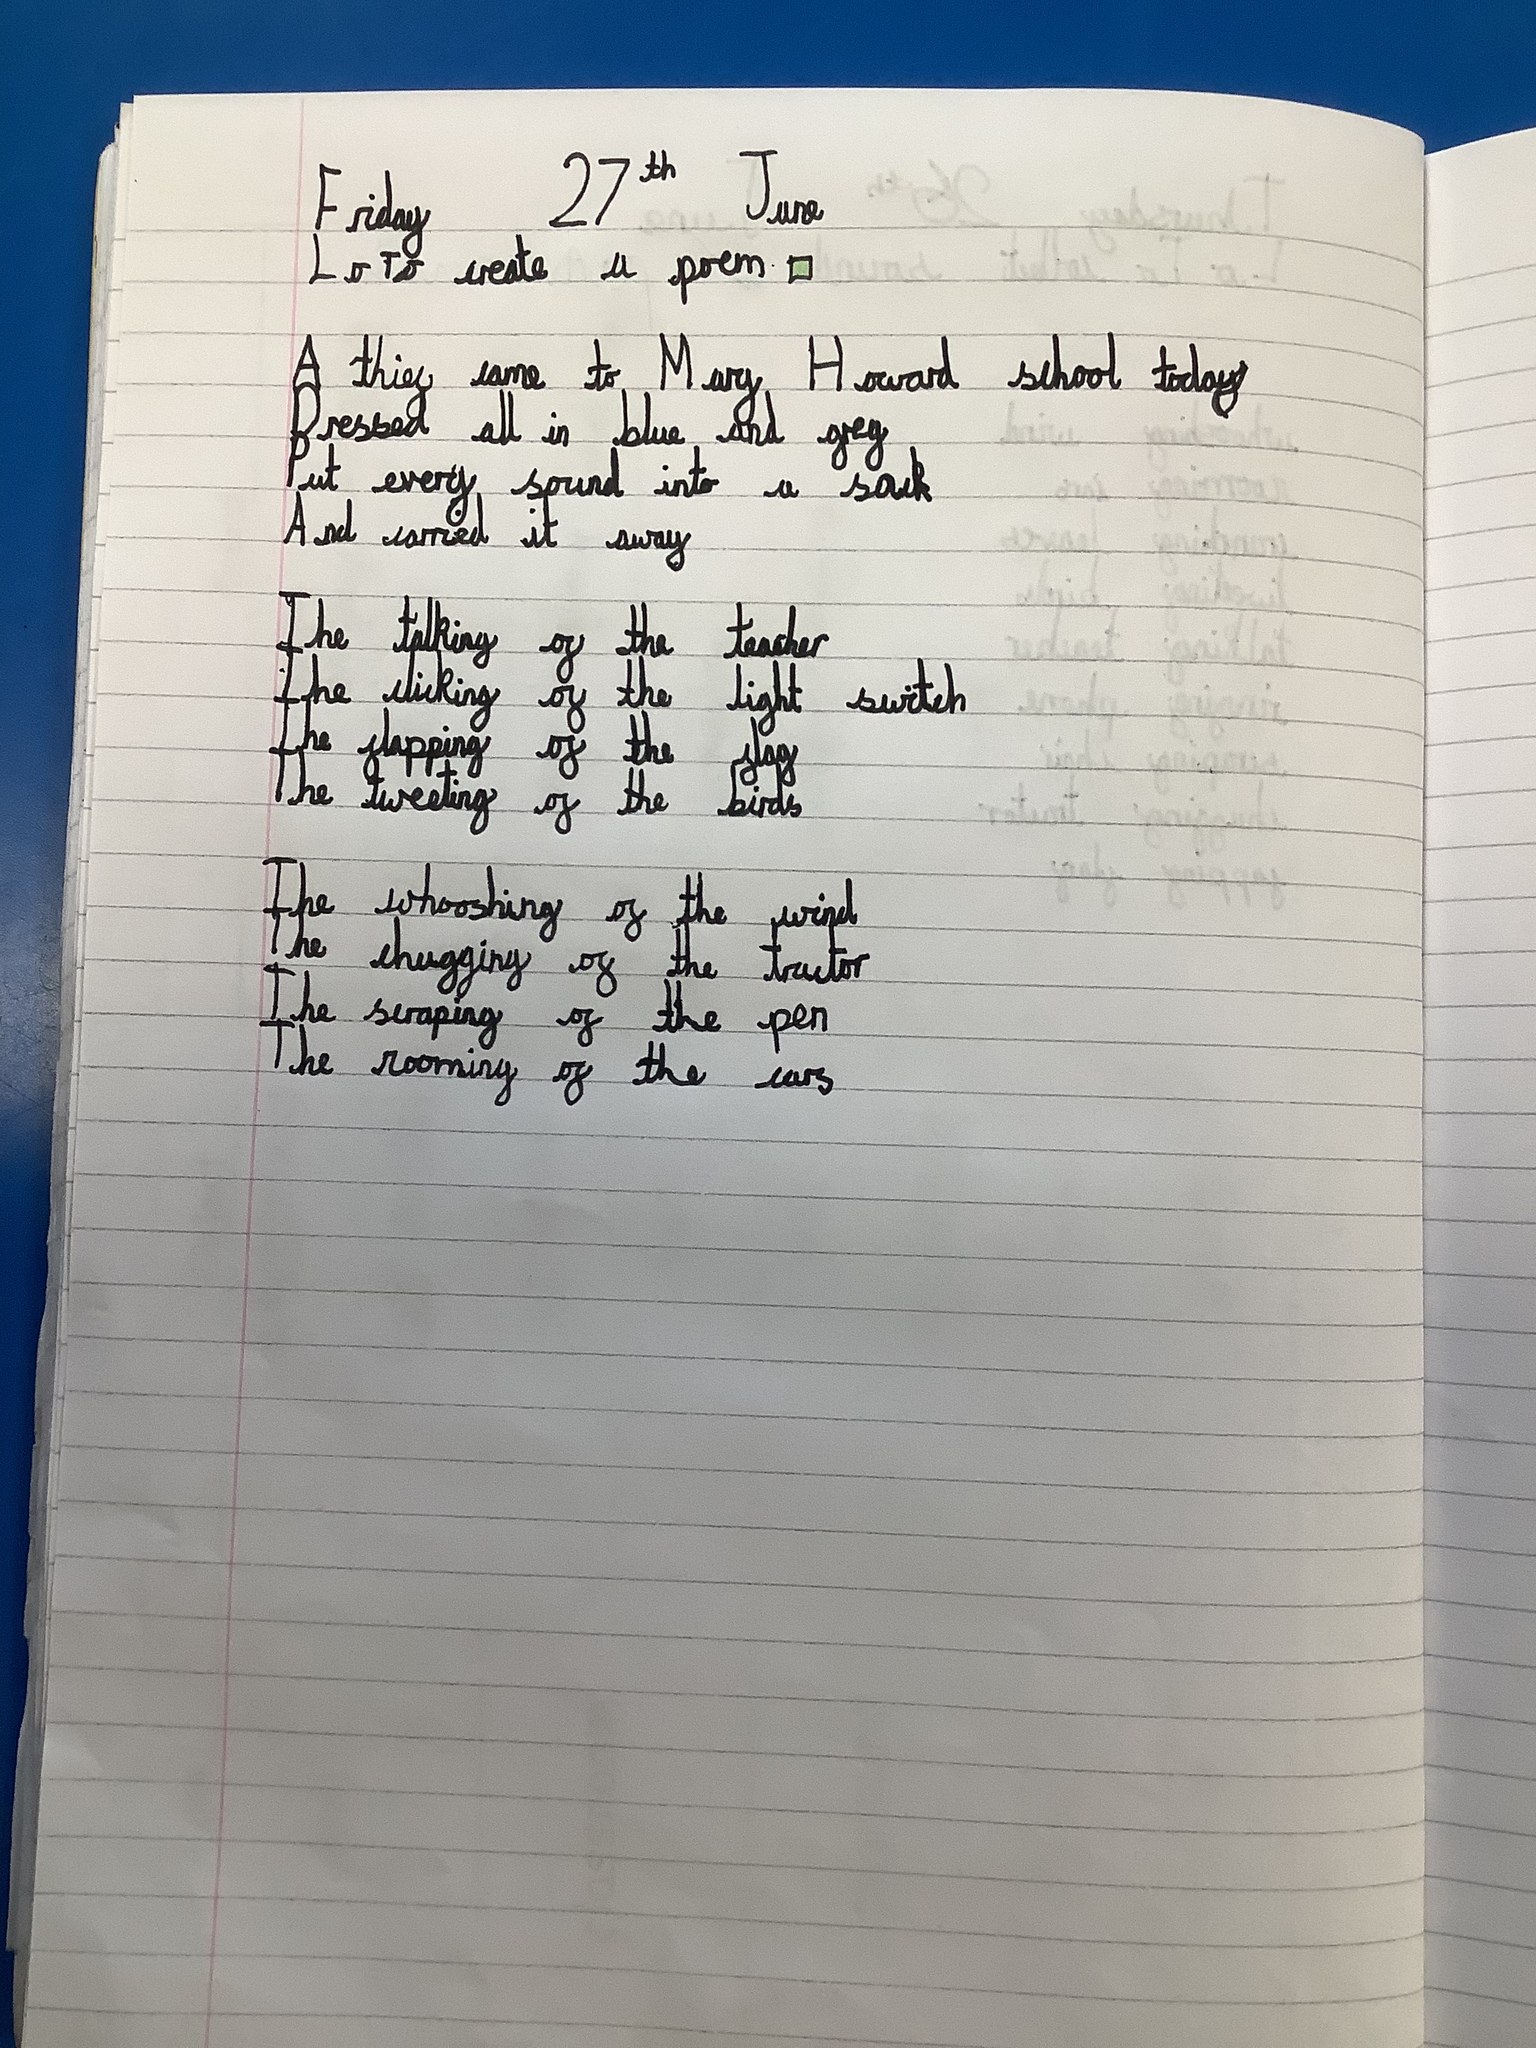 Friday 27th June
Lo To create a poem
A thief came to Mary Howard school today
Dressed all in blue and grey
Put every sound into a sack
And carried it away
The talking of the teacher
The clicking of the light switch
The flapping of the flag
The tweeting of the birds
The whooshing of the wind
The chugging of the tractor
The scraping of the pen
The rooming of the cars